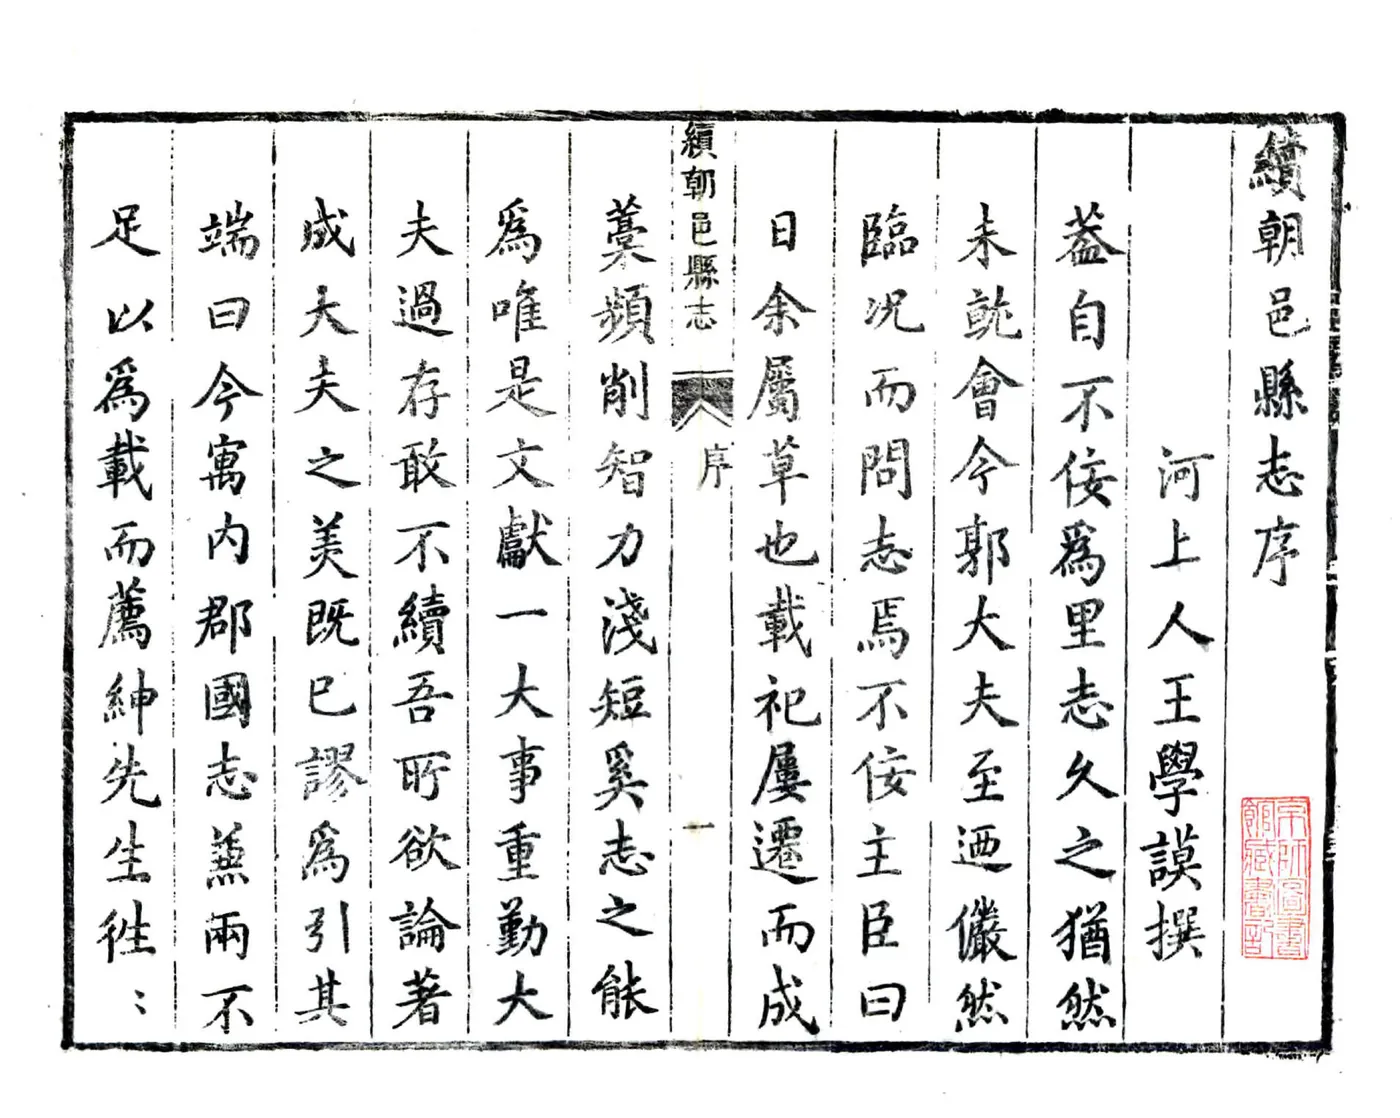 續朝邑縣志序
河上人王學謨撰
葢自不佞爲里志久之猶然
未就會今郭大夫至迺儼然
臨况而問志焉不佞主臣曰
日余屬草也載祀屢遷而成
藁頻削智力淺短奚志之能
爲唯是文獻一大事重勤大
夫過存敢不續吾所欲論著
成大夫之美既已謬爲引其
端曰今寓内郡國志蒸兩不
足以爲載而薦紳先生徃〻
續朝邑縣志
序
一
京師圖書
館藏書記